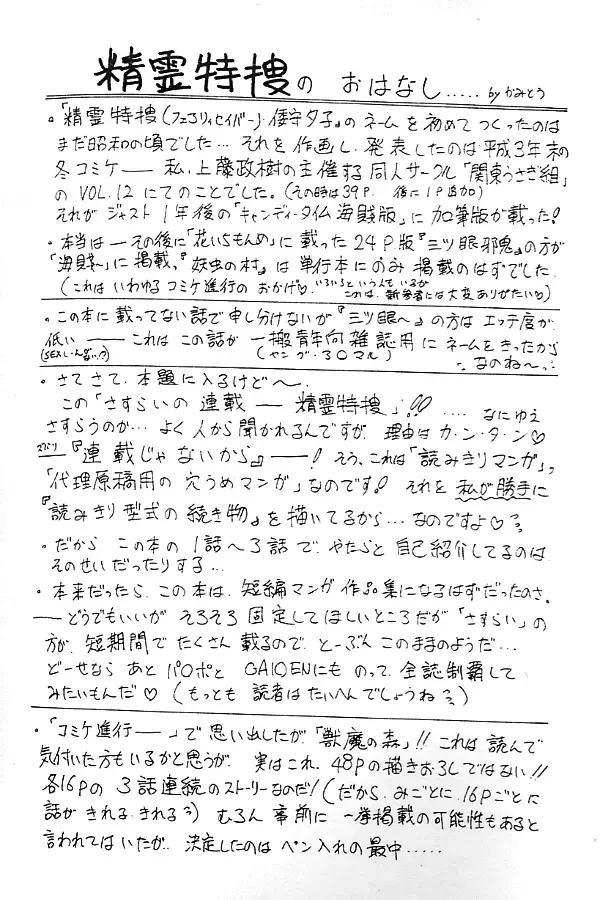 精霊特捜の おはなし..... by かみとう
・「精霊特捜(フェアリィセイバー)・倭守夕子」のネームを初めてつくったのは
まだ昭和の頃でした… それを作画し、発表したのは平成3年末の
冬コミケ── 私、上藤政樹の主催する同人サークル「関東うさぎ組」
の VOL.12 にてのことでした。(その時は39P. 後に1P追加)
それが ジャスト1年後の「キャンディータイム海賊版」に加筆版が載った!
・本当は──その後に「花いちもんめ」に載った24P版『三ツ眼邪鬼』の方が
「海賊〜」に掲載、『妖虫の村』は単行本にのみ掲載のはずでした.
(これは いわゆるコミケ進行の おかげ♡. いろいろという人もいるが これは、新参者には大変ありがたい♡)
・この本に載ってない話で申し分けないが『三ツ眼〜』の方はエッチ度が
低い ── これは この話が 一搬青年向雑誌用に ネームをきったから
(SEXシーンない?) (ヤング・30マル) ・なのね〜・
・さてさて、本題に入るけど〜.
この「さすらいの連載 ── 精霊特捜」!! .... なにゆえ
さすらうのか… よく人から聞かれるんですが、理由はカ・ン・タ・ン♡
ズバリ『連載じゃないから』──! そう、これは「読みきりマンガ」、
「代理原稿用の穴うめマンガ」なのです! それを 私が勝手に
『読みきり型式の続き物』を描いてるから… なのですよ♡?
・だから、この本の1話〜3話で、やたらと自己紹介してるのは
そのせいだったりする…
・本来だったら、この本は、短編マンガ作品集になるはずだったのさ.
──どうでもいいが そろそろ 固定してほしいところだが「さすらい」の
方が、短期間で たくさん載るので、とーぶん このままのようだ…
どーせなら あと パロポと GAIDENにも のって、全誌制覇して
みたいもんだ♡ (もっとも 読者は たいへんでしょうね?)
・「コミケ進行──」で思い出したが「獣魔の森」!! これは 読んで
気付いた方もいるかと思うが、 実はこれ、48Pの描きおろしではない!!
各16Pの 3話連続のストーリーなのだ! (だから、みごとに、16Pごとに
話が きれる、きれる?) むろん 事前に 一挙掲載の可能性もあると
言われてはいたが、 決定したのは ペン入れの最中.....